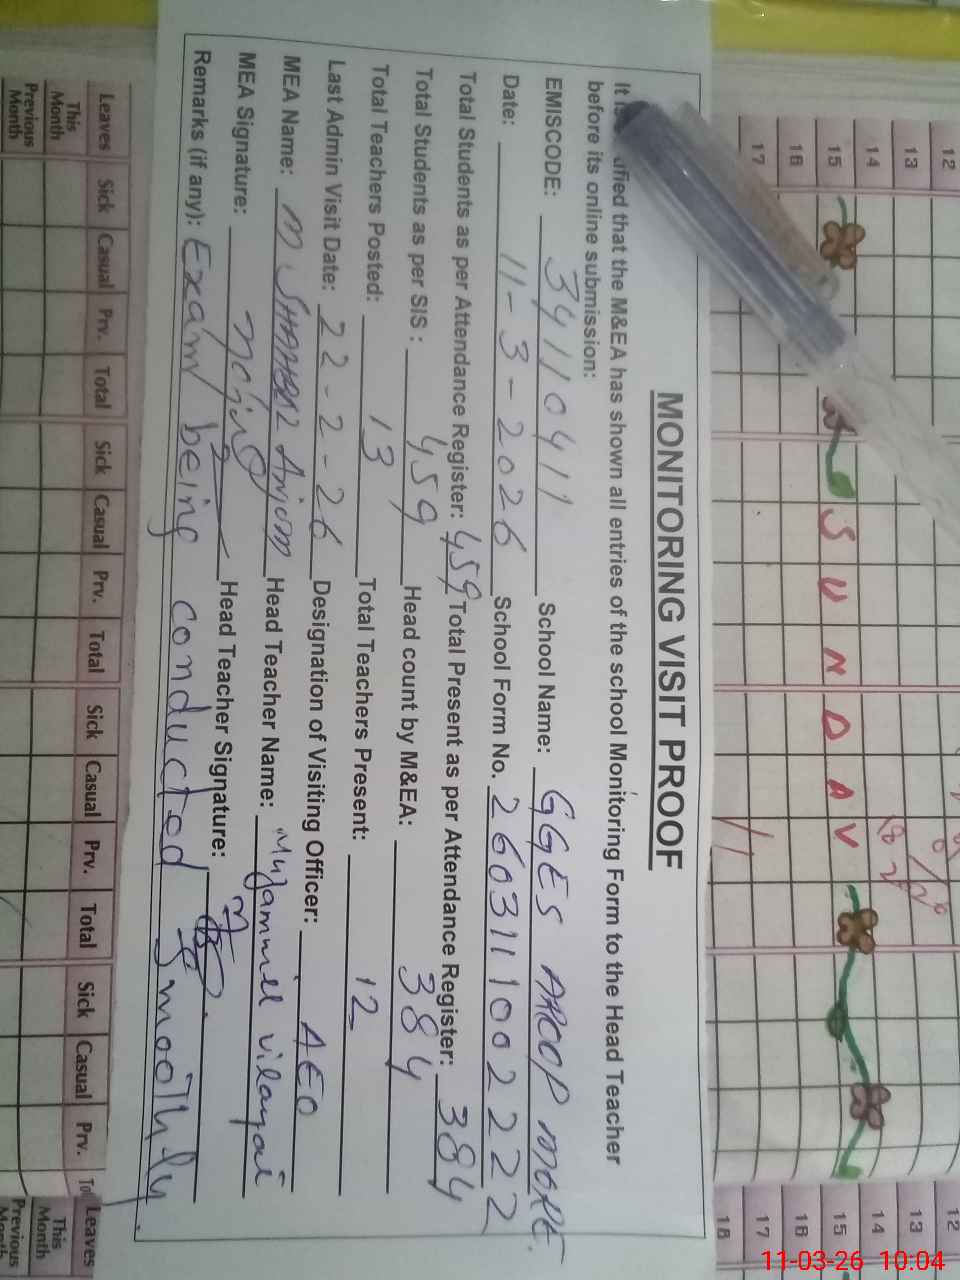 MONITORING VISIT PROOF
It is that the M&EA has shown all entries of the school Monitoring Form to the Head Teacher
before its online submission:
EMISCODE: 34110411 School Name: GGES AROOP MORE.
Date: 11-3-2026 School Form No. 260311100222
Total Students as per Attendance Register: 459 Total Present as per Attendance Register: 384
Total Students as per SIS: 459 Head count by M&EA: 384
Total Teachers Posted: 13 Total Teachers Present: 12
Last Admin Visit Date: 22-2-26 Designation of Visiting Officer: AEO
MEA Name: M Anjum Head Teacher Name:
MEA Signature: Head Teacher Signature:
Remarks (if any): Exam being conducted smoothly
12
13
14
15
16
17
SUNDAY
12
13
14
15
16
17
18
Leaves Sick Casual Prv. Total Sick Casual Prv. Total Sick Casual Prv. Total Sick Casual Prv. Leaves
This Month
Previous Month
This Month
Previous
11-03-26 10:04